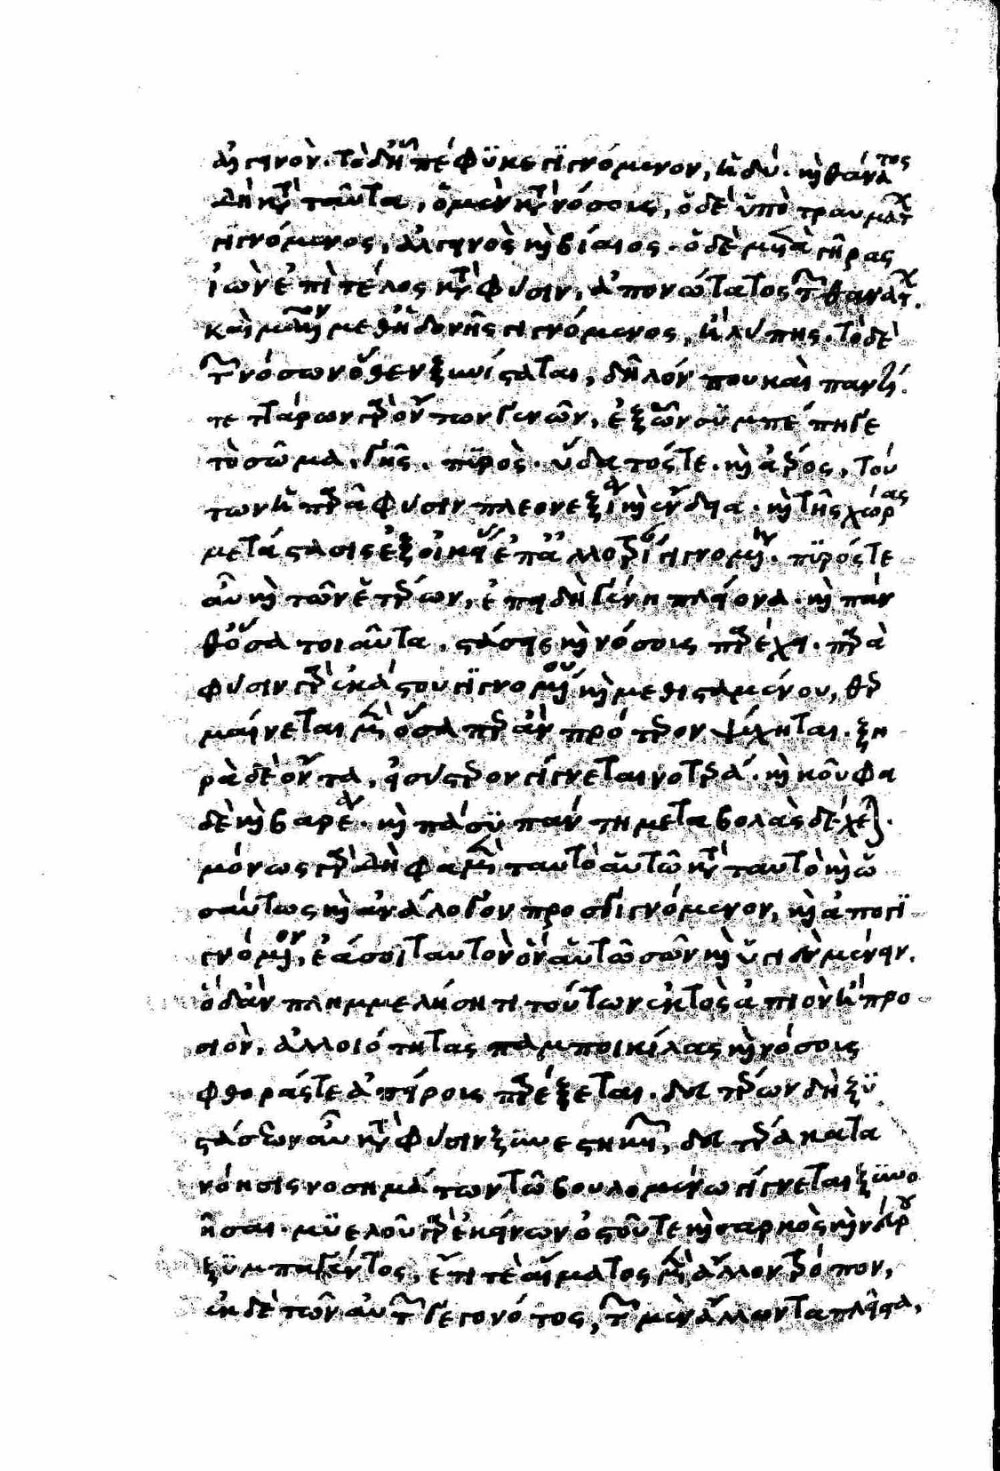 ἀλγεινὸν. τὸ δ' ᾗ πέφυκε γιγνόμενον, ἡδύ. καὶ θάνατος
δὴ κατὰ ταῦτα, ὁ μὲν κατὰ νόσους, ὁ δὲ ὑπὸ τραυμάτων
γιγνόμενος, ἀλγεινὸς καὶ βίαιος. ὁ δὲ μετὰ γῆρας
ἰὼν ἐπὶ τέλος κατὰ φύσιν, ἀπονώτατος τῶν θανάτων.
καὶ μᾶλλον μεθ' ἡδονῆς γιγνόμενος, ἢ λύπης. τὸ δὲ
τῶν νόσων ὅθεν ξυνίσταται, δῆλόν που καὶ παντί.
τεττάρων γὰρ ὄντων γενῶν, ἐξ ὧν συμπέπηγε
τὸ σῶμα, γῆς. πυρὸς. ὕδατός τε. καὶ ἀέρος, τού
των ἡ παρὰ φύσιν πλεονεξία καὶ ἔνδεια. καὶ τῆς χώρας
μετάστασις ἐξ οἰκείας ἐπ' ἀλλοτρίαν γιγνομένη. πυρός τε
αὖ καὶ τῶν ἑτέρων, ἐπειδὴ γένη πλείονα. καὶ πάν
θ' ὅσα τοιαῦτα, στάσεις καὶ νόσους παρέχει. παρὰ
φύσιν γὰρ ἑκάστου γιγνομένου καὶ μεθισταμένου, θερ
μαίνεται μὲν ὅσα περ ἂν πρότερον ψύχηται. ξη
ρὰ δὲ ὄντα, εἰσύστερον γίγνεται νοτερά. καὶ κοῦφα
δὲ καὶ βαρέα. καὶ πάσας πάντῃ μεταβολὰς δέχεται.
μόνως γὰρ δὴ φαμὲν ταυτὸ αὑτῶ κατὰ ταυτὸ καὶ ὡ
σαύτως καὶ ἀνάλογον προσγιγνόμενον, καὶ ἀπογι
γνόμενον, ἐάσει ταυτὸν ὂν αὑτῶ σῶν καὶ ὑγιὲς μένειν.
ὁ δ' ἂν πλημμελήσῃ τι τούτων ἐκτὸς ἀπιὸν ἢ προ
σιὸν, ἀλλοιότητας παμποικίλας καὶ νόσους
φθοράς τε ἀπείρους παρέξεται. δευτέρων δὴ ξυ
στάσεων αὖ κατὰ φύσιν ξυνεστηκυιῶν, δευτέρα κατα
νόησις νοσημάτων τῶ βουλομένω γίγνεται ξυννο
ῆσαι. μυελοῦ γὰρ ἐξ ἐκείνων ὀστοῦ τε καὶ σαρκὸς καὶ νεύρου
ξυμπαγέντος, ἔτι τὲ αἵματος μὲν ἄλλον τρόπον,
ἐκ δὲ τῶν αὐτῶν γεγονότος, τῶν μὲν ἄλλων τὰ πλεῖστα,